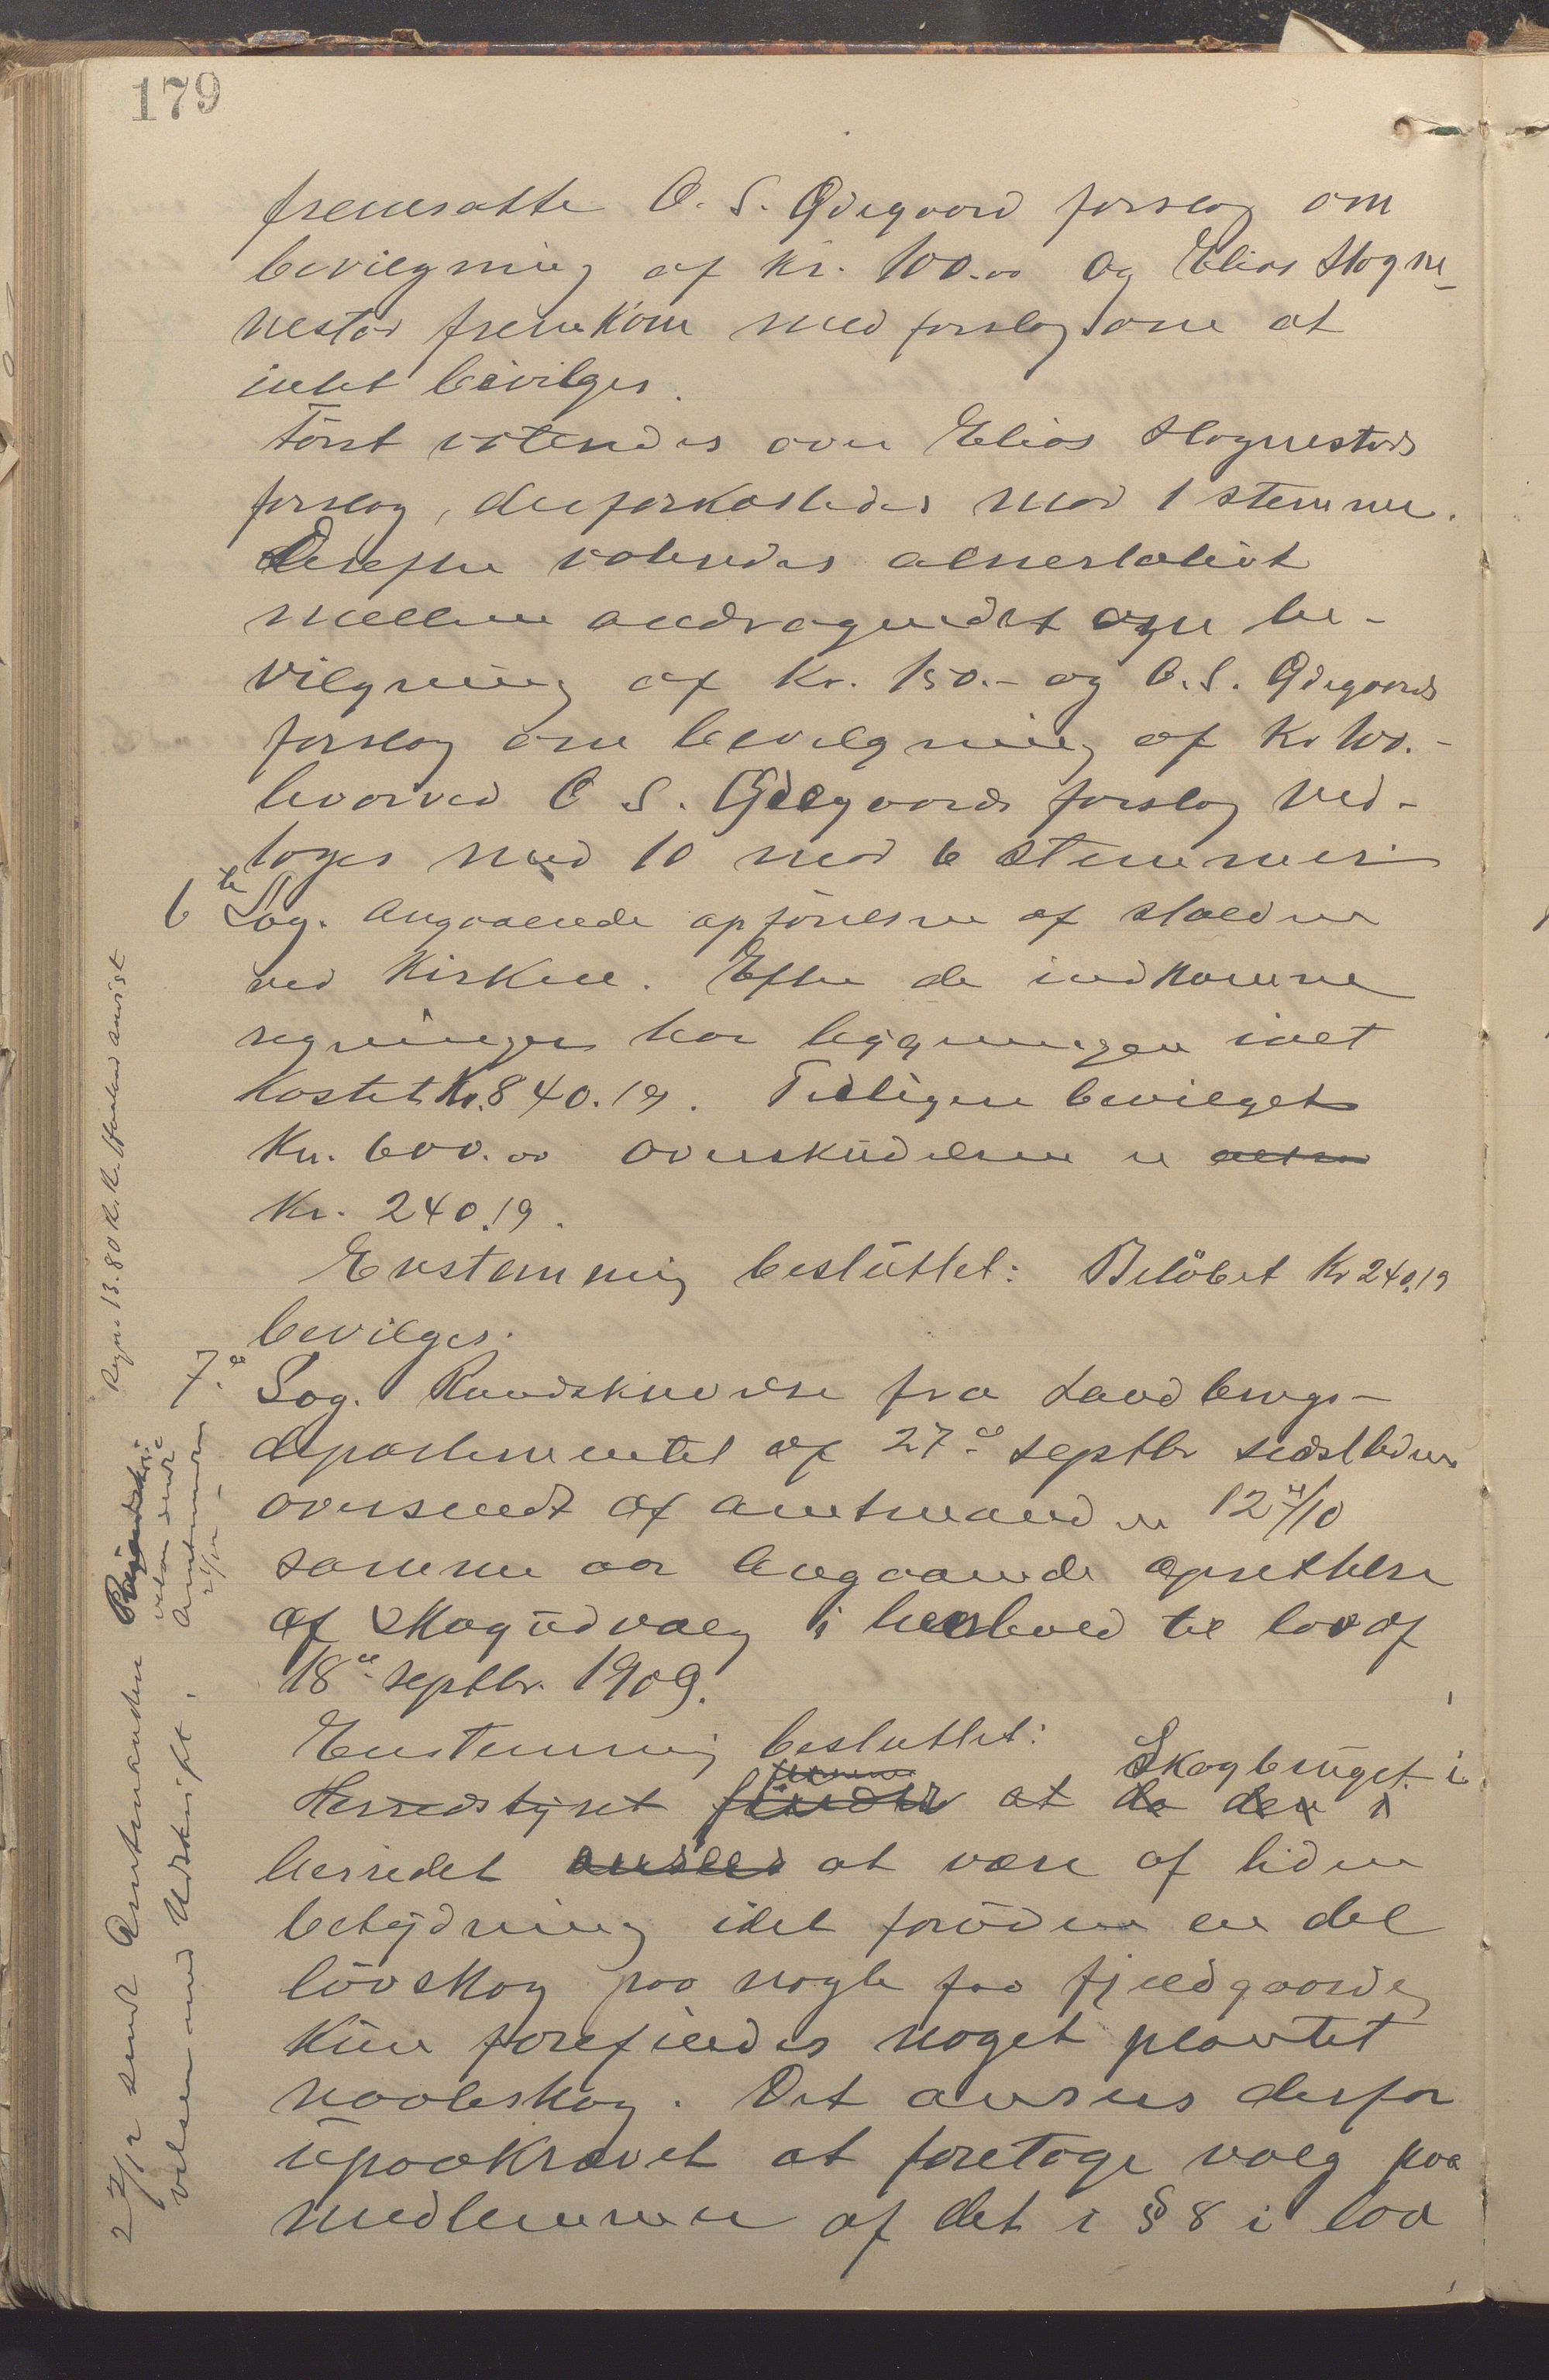 179
fremsatte O. S. Ødegaard forslag om
bevilgning af Kr. 100.00 og Elias Hogne-
nestad fremkom med forslag om at
intet bevilges.
Först votendes over Elias Hognestads
forslag, der forkastedes mod 1 stemme.
Derefter votendes alternativt
mellem andragendet om be-
vilgning af Kr. 150.- og O. S. Ødegaards
forslag om bevilgning af Kr 100.-
hvorved O S. Ødegaards forslag ved-
toges med 10 mod 6 stemmer.
6te Sag. Angaaende opförelsen af stalden
ved Kirken. Efter de indkomne
regninger har bygningen ialt
kostet Kr. 840.19. Tidligere bevilget
Kr. 600.00 Overskridelsen er altsaa
Kr. 240.19.
Enstemmig besluttet: Belöbet Kr 240.19
bevilges.
7.de Sag. Rundskrivelse fra Landbrugs-
departementet af 27de septbr sidstleden
oversendt af amtmanden 12/10
samme aar angaaende oprettelse
af Skogudvalg i henhold til lov af
18de septbr. 1909.
Enstemmig besluttet: Skogbruget i
Herredstyret finder at da der i
herredet ansees at være af liden
betydning idet foruden en del
lövskog paa nogle faa fjeldgaarde
kun forefindes noget plantet
naaleskog. Det ansees derfor
upaakrævet at foretage valg paa
medlemmer af det i § 8 i lov
Regn. 13.80 K. K. anvist
27/12 sendt Amtmanden
velsen med Udskrift.
vedr. sendt
Amtmanden